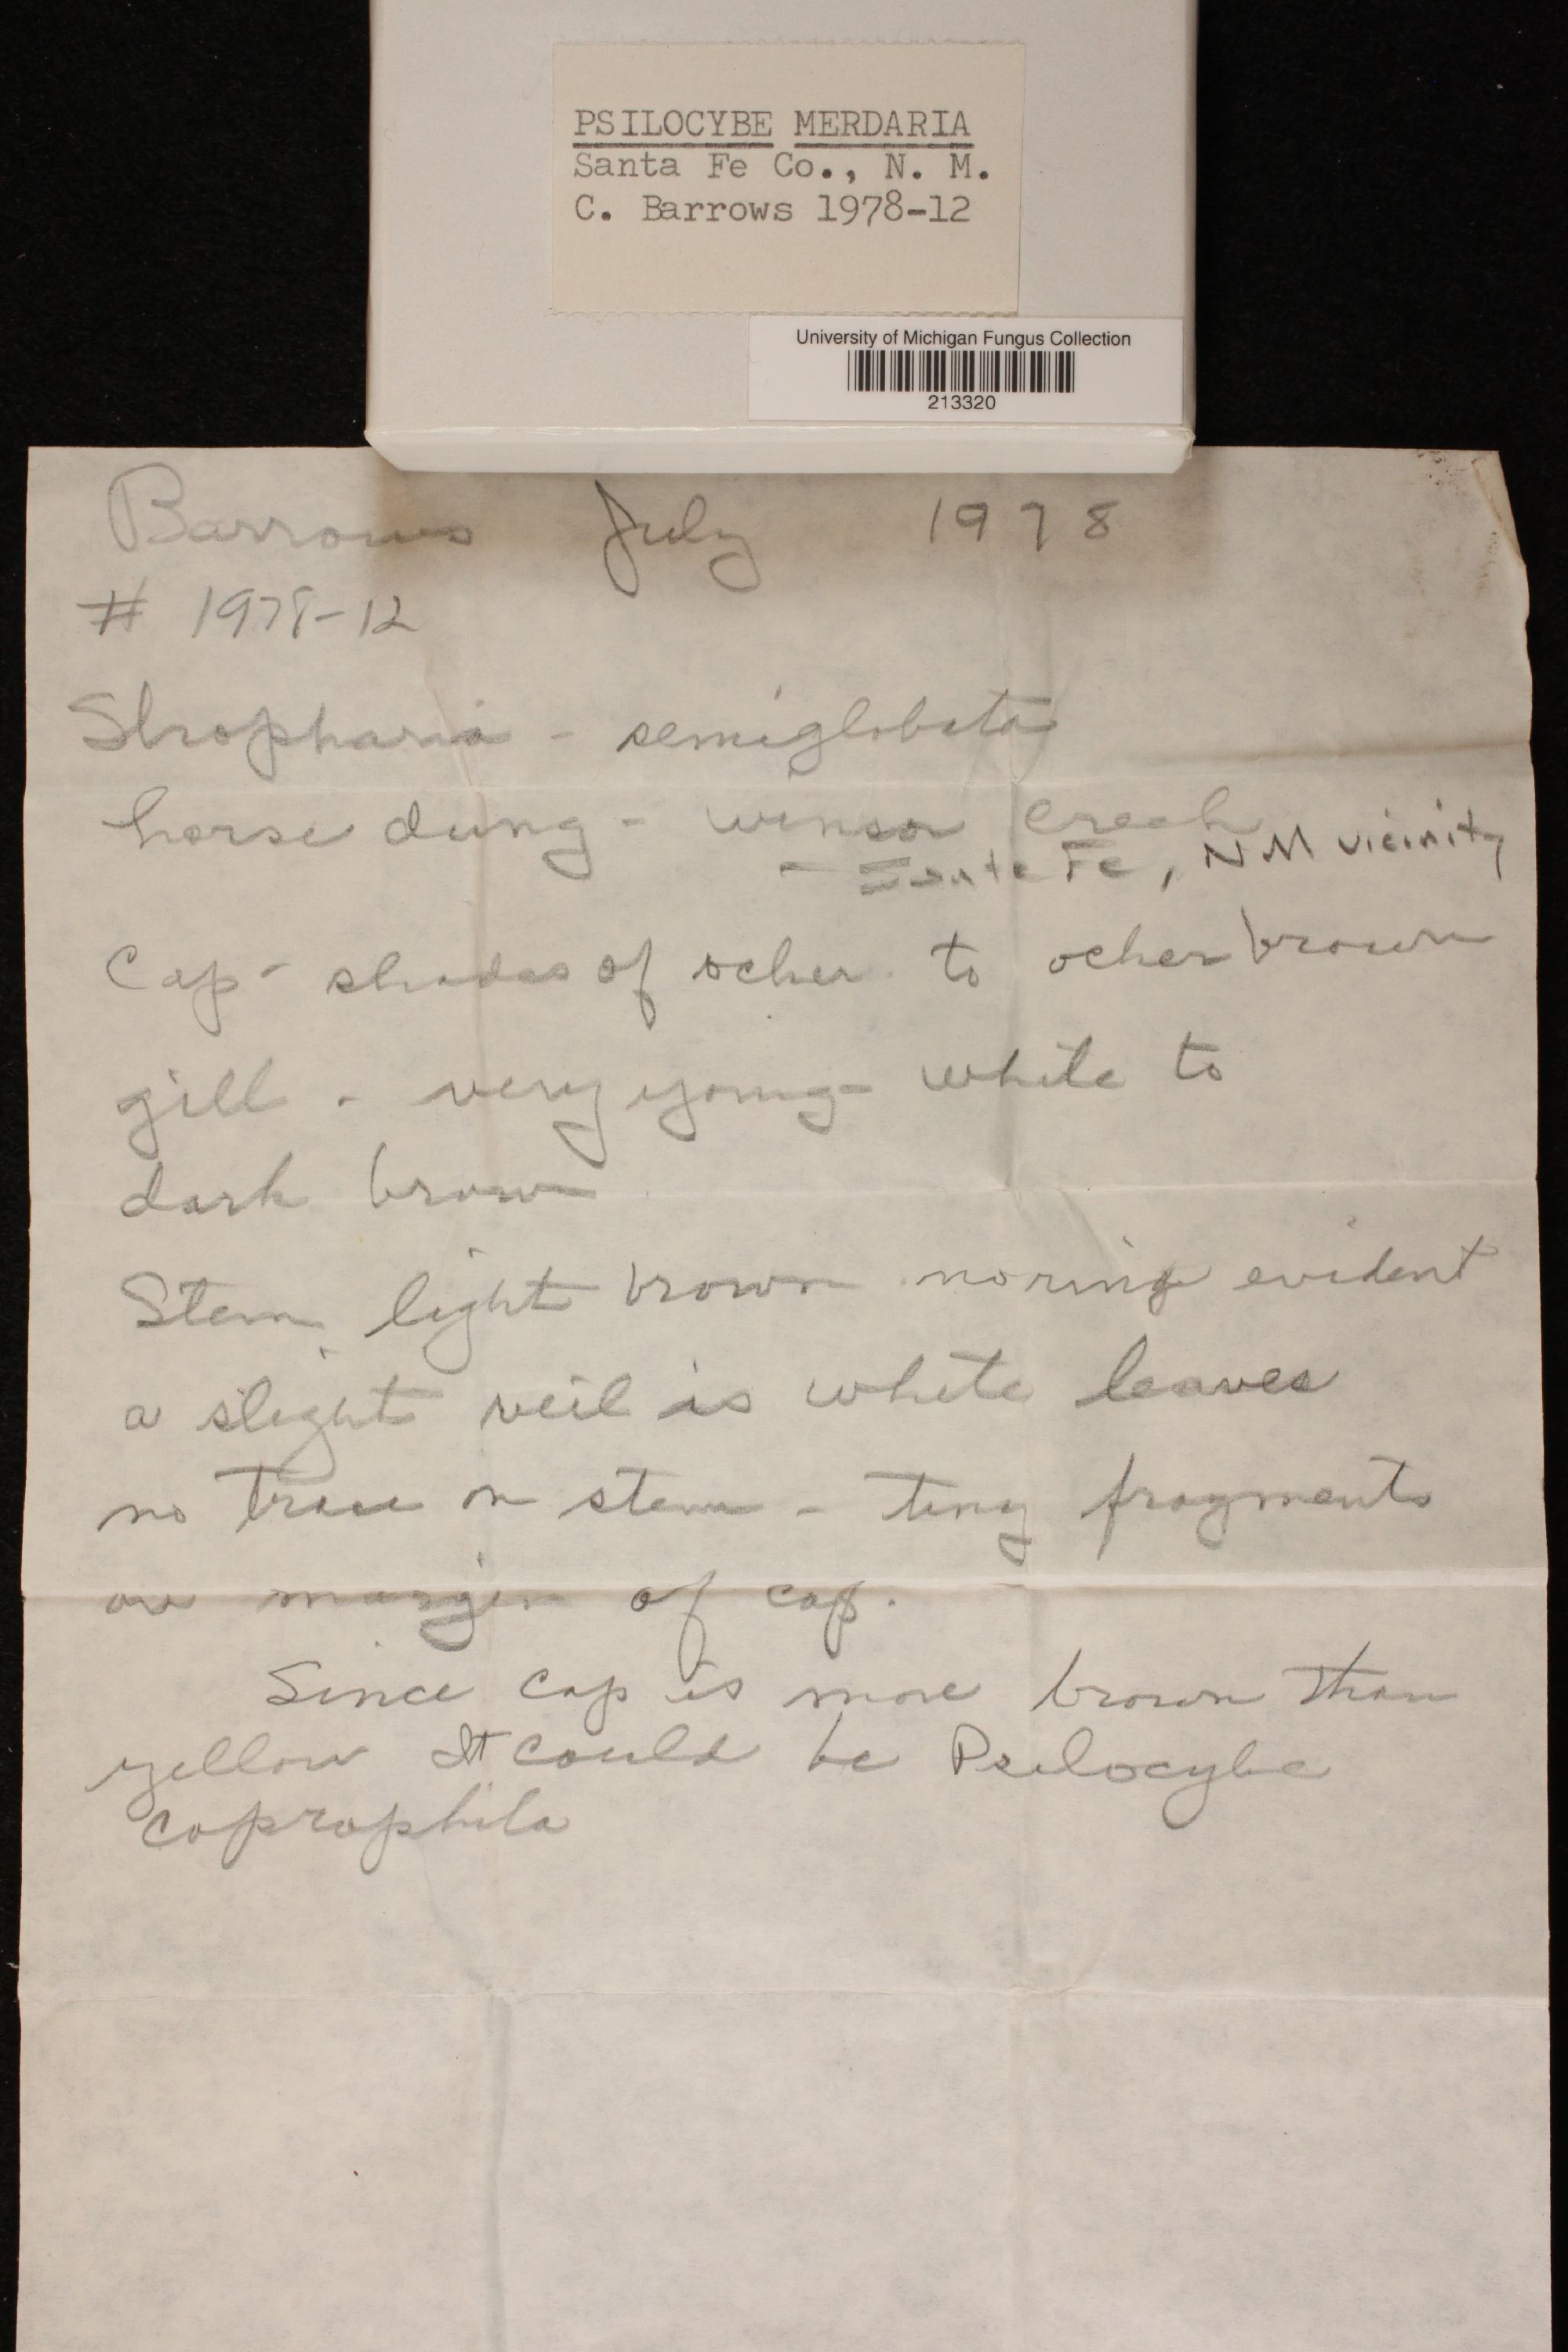 PSILOCYBE MERDARIA
Santa Fe Co., N. M.
C. Barrows 1978-12
University of Michigan Fungus Collection
213320
Barrows July 1978
# 1978-12
Stropharia - semiglobata
horse dung - winsor creek
- Santa Fe, NM vicinity
Cap - shades of ocher to ocher brown
gill - very young - white to
dark brown
Stem light brown no ring evident
a slight veil is white leaves
no trace on stem - tiny fragments
on margin of cap.
Since cap is more brown than
yellow It could be Psilocybe
coprophila